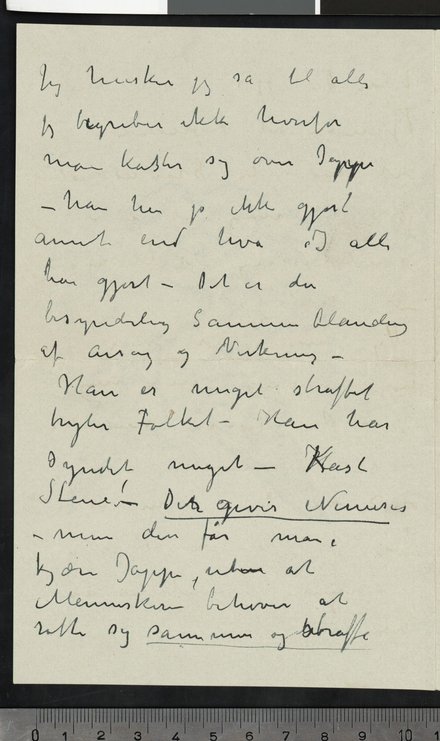 Jeg husker jeg sa til alle
jeg begriber ikke hvorfor
man kaster sig over Jappe
– han har jo ikke gjort
annet end hva I alle
har gjort – Det er den
besynderlig Sammen Blanding
af Arsag og Virkning –
Han er meget straffet
tryter Folket – Han har
syndet meget – Kast
Stene! – Det giver Nemesis
– men den får man,
kjære Jappe, uten at
Menneskene behøver at
sette sig sammen og straffe